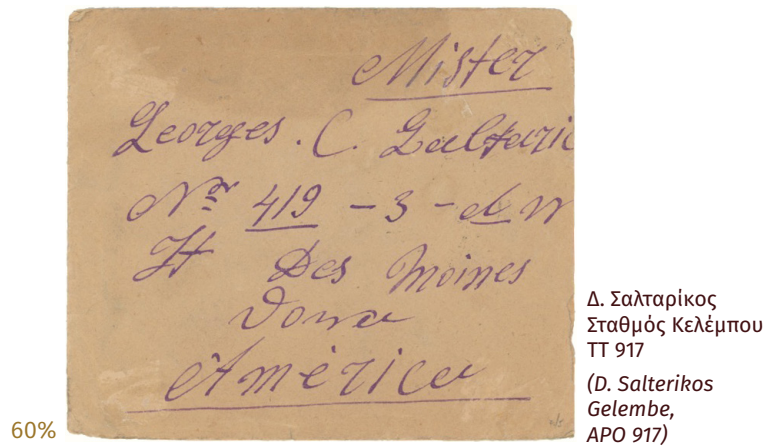 Mister
Georges . C. Saltaric
Nr 419 – 3 – d W
St Des Moines
Iowa
América
60%
Δ. Σαλταρίκος
Σταθμός Κελέμπου
ΤΤ 917
(D. Salterikos
Gelembe,
APO 917)